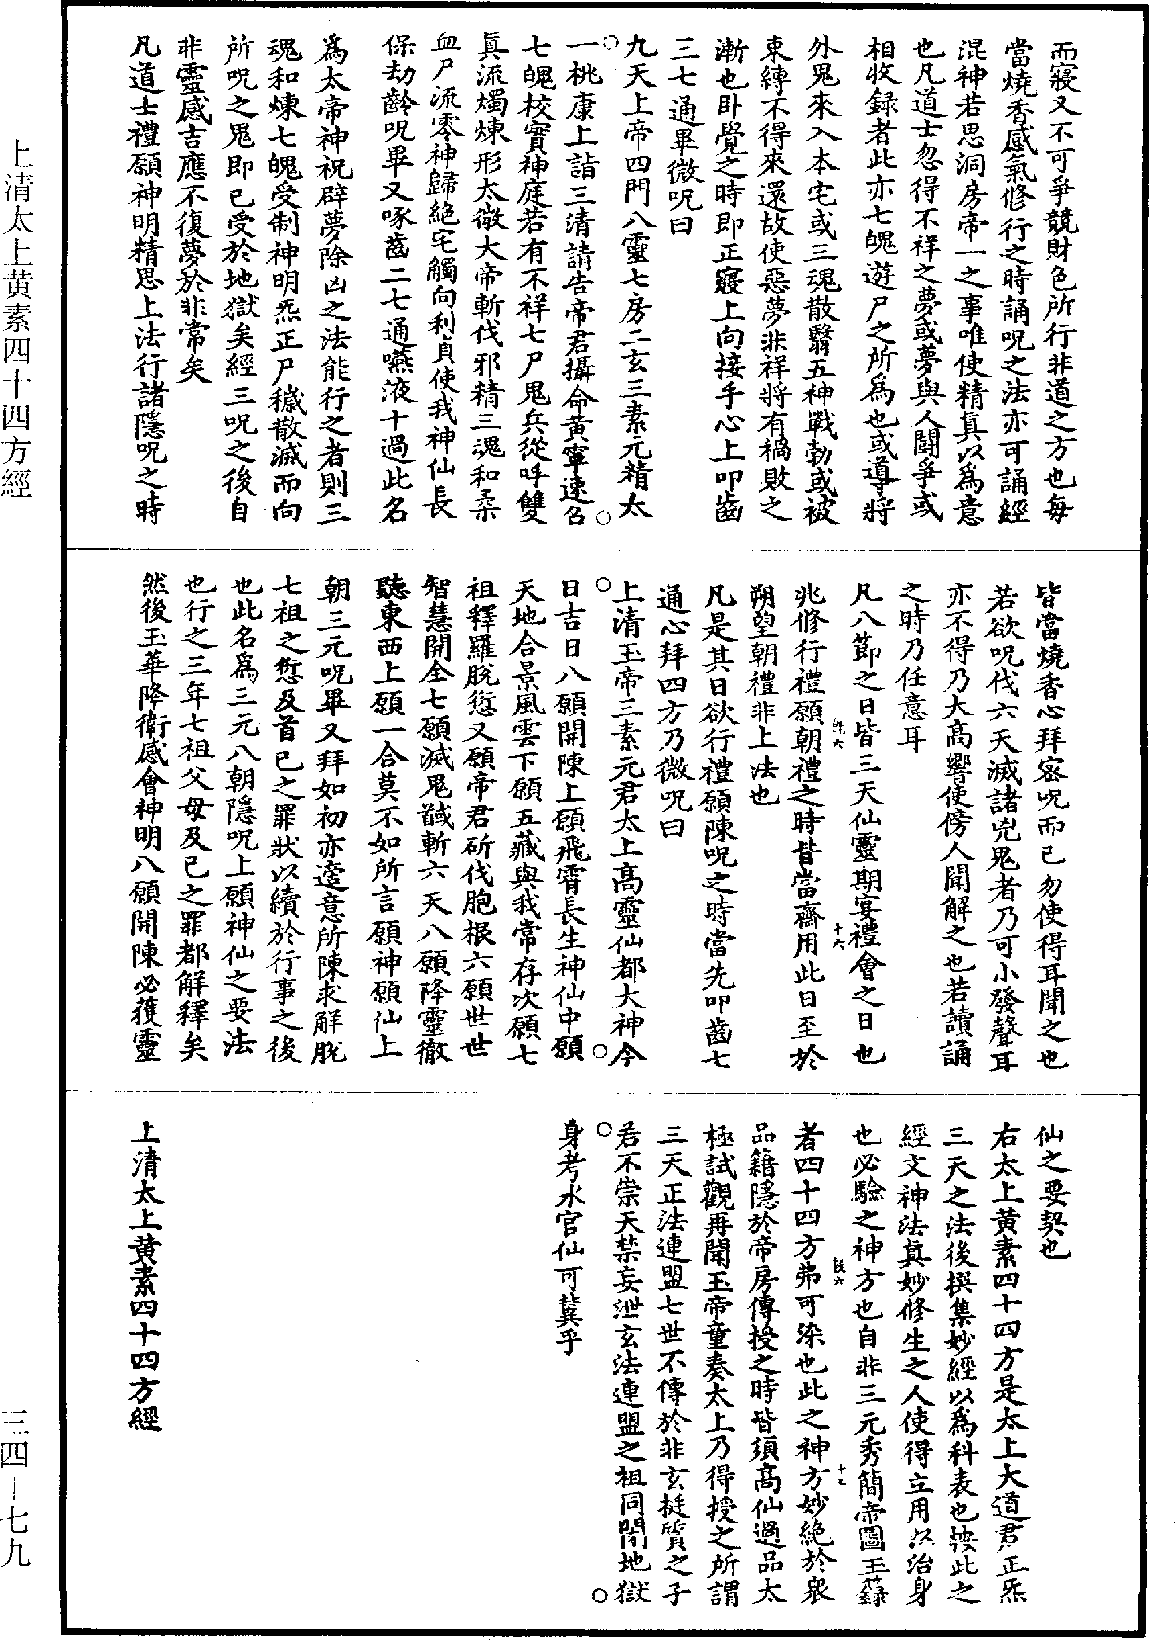 而寢又不可爭競財色所行非道之方也每
當燒香感氣修行之時誦呪之法亦可誦經
混神若思洞房帝一之事唯使精真以為意
也凡道士忽得不祥之夢或夢與人鬪爭或
相收録者此亦七魄遊尸之所為也或導將
外鬼來入本宅或三魂散翳五神戰勃或被
束縛不得來還故使惡夢非祥將有禍敗之
漸也卧覺之時即正寢上向接手心上叩齒
三七通畢微呪曰
九天上帝四門八靈七房二玄三素元精太
一桃康上詣三清請告帝君攝命黃寧速召
七魄校實神庭若有不祥七尸鬼兵從呼雙
真流燭煉形太微大帝斬伐邪精三魂和柔
血尸流零神歸絕宅觸向利貞使我神仙長
保劫齡呪畢又啄齒二七通嚥液十過此名
為太帝神祝辟夢除凶之法能行之者則三
魂和煉七魄受制神明炁正尸穢散滅而向
所呪之鬼即已受於地獄矣經三呪之後自
非靈感吉應不復夢於非常矣
凡道士禮願神明精思上法行諸隱呪之時
皆當燒香心拜密呪而已勿使得耳聞之也
若欲呪伐六天滅諸兇鬼者乃可小發聲耳
亦不得乃大高響使傍人聞解之也若讀誦
之時乃任意耳
凡八節之日皆三天仙靈期宴禮會之日也
兆修行禮願朝禮之時皆當齋用此日至於
朔望朝禮非上法也
凡是其日欲行禮願陳呪之時當先叩齒七
通心拜四方乃微呪曰
上清玉帝三素元君太上高靈仙都大神今
日吉日八願開陳上願飛霄長生神仙中願
天地合景風雲下願五藏與我常存次願七
祖釋羅脫愆又願帝君斫伐胞根六願世世
智慧開全七願滅鬼馘斬六天八願降靈徹
聽東西上願一合莫不如所言願神願仙上
朝三元呪畢又拜如初亦適意所陳求解脫
七祖之愆及首已之罪狀以續於行事之後
也此名為三元八朝隱呪上願神仙之要法
也行之三年七祖父母及已之罪都解釋矣
然後玉華降衛感會神明八願開陳必獲靈
仙之要契也
右太上黃素四十四方是太上大道君正炁
三天之法後撰集妙經以為科表也按此之
經文神法真妙修生之人使得立用以治身
也必驗之神方也自非三元秀簡帝圖玉籙
者四十四方弗可染也此之神方妙絕於衆
品籍隱於帝房傳授之時皆須高仙過品太
極試觀再聞玉帝童奏太上乃得授之所謂
三天正法連盟七世不傳於非玄挺質之子
若不崇天禁妄泄玄法連盟之祖同閉地獄
身考水官仙可冀乎
上清太上黃素四十四方經
上清太上黄素四十四方經
三四—七九